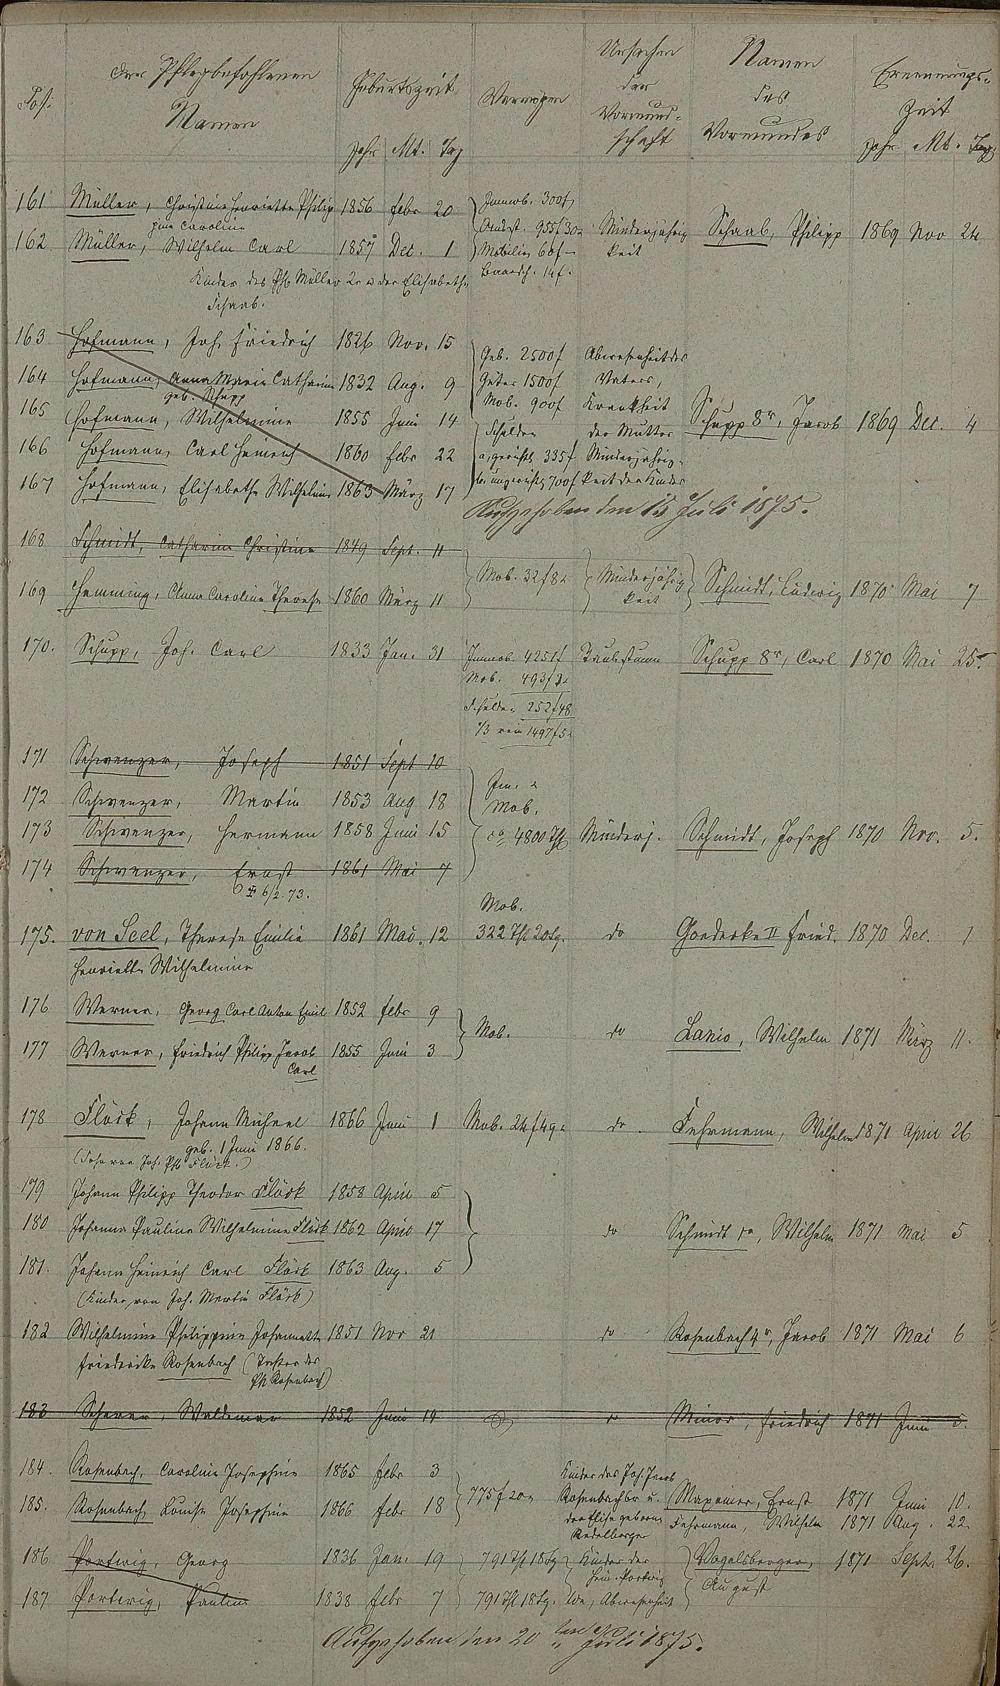 Der Pflegbefohlenen Namen Geburtszeit Vermögen Ursachen der Vormundschaft Namen des Vormundes Ernennungs-Zeit
Jahr Mt. Tag Jahr Mt. Tag
161 Müller, Christine Henriette Philip 1856 Febr 20 Immob. 300 f
pine Caroline
162 Müller, Wilhelm Carl 1857 Dec. 1 Mobilien 60 f Minderjährigkeit Schaab, Philipp 1869 Nov 24
Kinder des Ph. Müller 2r u der Elisabeth
Baarsch. 14 f.
Schaab.
163 Hofmann, Joh. Friedrich 1826 Nov. 15 Geb. 2500 f Abwesenheit des
164 Hofmann, Anna Maria Catharine 1832 Aug. 9 Güter 1500 f Vaters,
geb. Schupp
165 Hofmann, Wilhelmine 1855 Juni 14 Mob. 900 f Krankheit der Mutter Schupp 8r, Jacob 1869 Dec. 4
Schulden
166 Hofmann, Carl Heinrich 1860 Febr 22 335 f Minderjährig-
167 Hofmann, Elisabethe Wilhelmine 1863 März 17 700 f keit der Kinder
Aufgehoben den 15 Juli 1875.
168 Schmidt, Catharine Christine 1849 Sept. 11
169 Hemming, Anna Caroline Therese 1860 März 11 Mob. 32 f 8 Minderjährigkeit Schmidt, Ludwig 1870 Mai 7
170. Schupp, Joh. Carl 1833 Jan. 31 Immob. 4251 f Taubstumm Schupp 8r, Carl 1870 Mai 25
Mob. 493 f
Schulden 252 f 48
1/3 rein 1497 f 5
171 Schwenzer, Joseph 1851 Sept 20
172 Schwenzer, Martin 1853 Aug 18 Im. &
Mob.
173 Schwenzer, Hermann 1858 Juni 15 ca 4800 Thl Minderj. Schmidt, Joseph 1870 Nov. 5.
174 Schwenzer, Ernst 1861 Mai 7
6/2. 73.
Mob.
175. von Seel, Therese Emilie 1861 Mai. 12 322 Thl 20 Sg. do Goedecke II Fried. 1870 Dec. 1
Henriette Wilhelmine
176 Werner, Georg Carl Anton Emil 1852 Febr 9
Mob. do Lanio, Wilhelm 1871 März 11.
177 Werner, Friedrich Philipp Jacob 1855 Juni 3
Carl
178 Flöck, Johann Michael 1866 Juni 1 Mob. 24 f 49 do. Fuhrmann, Wilhelm 1871 April 26
geb. 1 Juni 1866.
(Sohn von Joh. Ph. Flöck.)
179 Johann Philipp Theodor Flöck 1858 April 5
180 Johanna Pauline Wilhelmine Flöck 1862 April 17 do Schmidt, Wilhelm 1871 Mai 5
181. Johann Heinrich Carl Flöck 1863 Aug. 5
(Kinder von Joh. Martin Flöck)
182 Wilhelmine Philippine Johannette 1851 Nov 21 do Rosenbach 4r, Jacob 1871 Mai 6
Friedericke Rosenbach (Tochter des
Ph. Rosenbach)
183 Scherer, Waldemar 1852 Juni 19 do Minor, Friedrich 1871 Juni
184. Rosenbach, Caroline Josephine 1865 Febr 3 Kinder des Joh. Jacob
775 f 20 Rosenbach 6r u. Maxeiner, Ernst 1871 Juni 10.
185. Rosenbach, Louise Josephine 1866 Febr 18 der Elise geborene Fuhrmann, Wilhelm 1871 Aug. 22
186. Portwig, Georg 1836 Jan. 19 791 Thl 18 Sg Kinder der Vogelsberger, 1871 Sept. 26.
Heinr. Portwig August
187 Portwig, Pauline 1838 Febr 7 791 Thl 18 Sg. Abwesenheit
Aufgehoben den 20 ten Juli 1875.